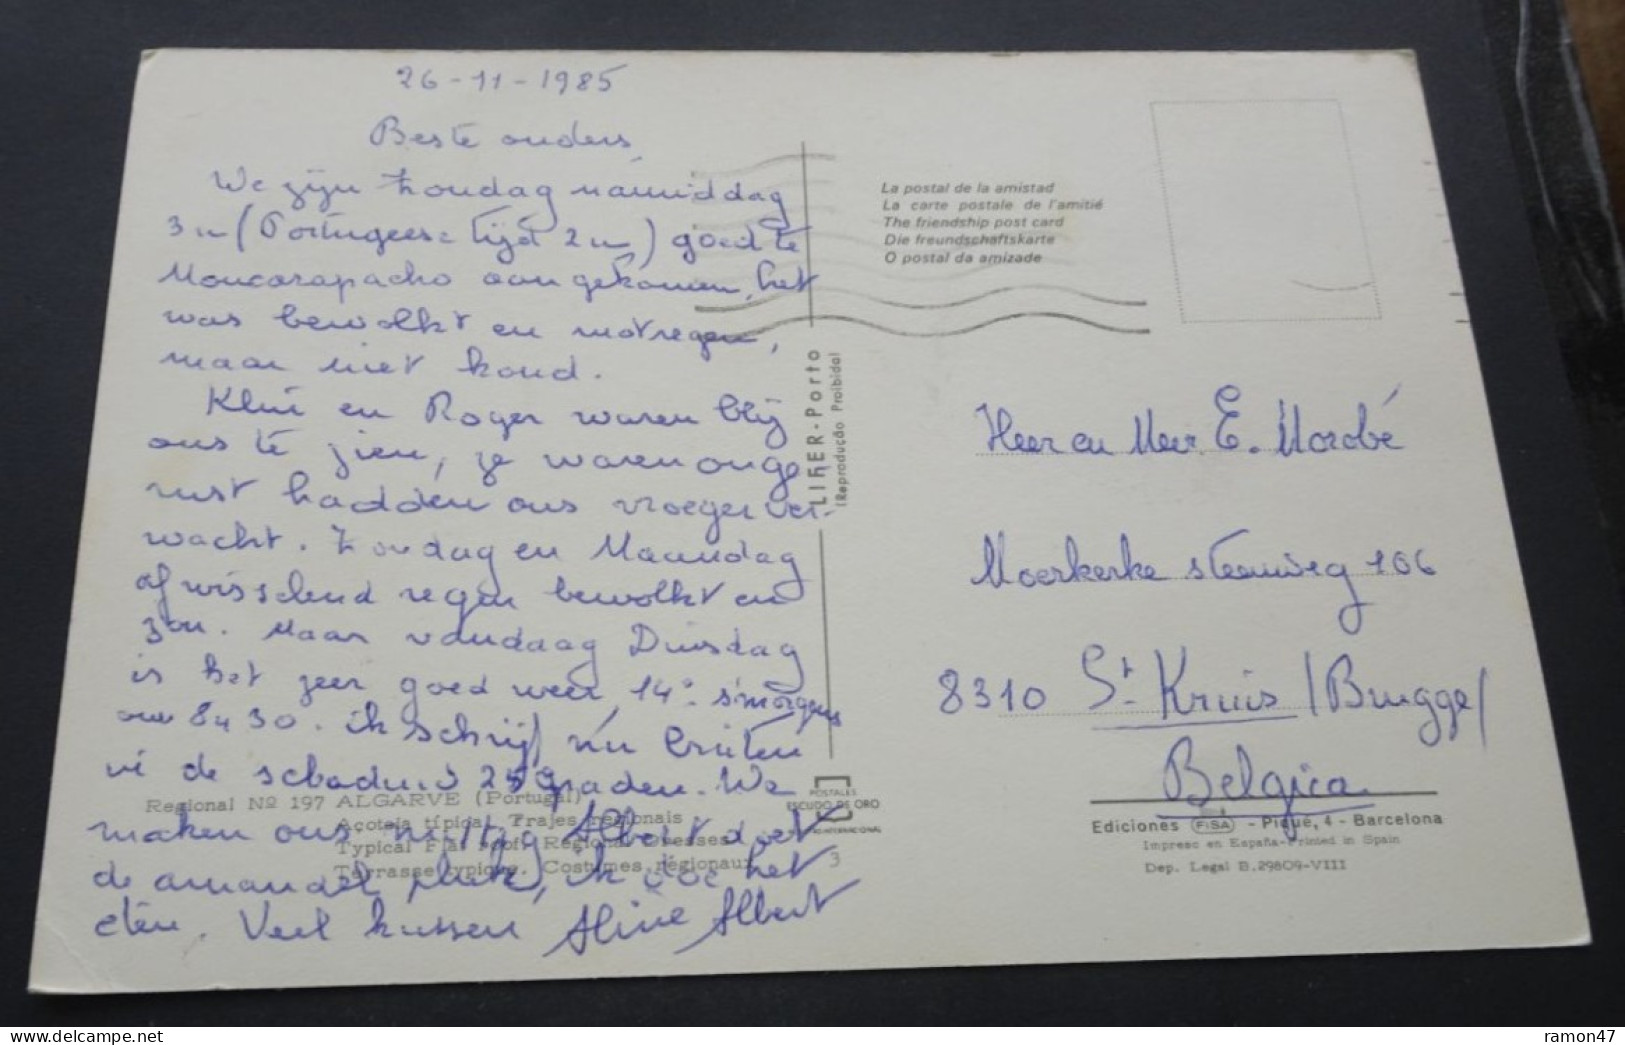 26-11-1985
Beste ouders,
We zijn Zondag namiddag
3u (Portugeese tijd 2u) goed te
Moncarapacho aangekomen, het
was bewolkt en motregen,
maar niet koud.
en Roger waren blij
ons te zien, ze waren onge
rust hadden ons vroeger ver-
wacht. Zondag en Maandag
afwisselend regen bewolkt en
zon. Maar vandaag Dinsdag
is het zeer goed weer, 14° s'morgens
om 8u30. ik schrijf nu buiten
in de schaduw graden. We
maken ons nuttig Albert doet
de amandel pluk, ik doe het
eten. Veel kussen Aline Albert
Regional Nº 197 ALGARVE (Portugal)
Açoteia típica. Trajes regionais
Typical Flat roof. Regional Dresses
Terrasse typique. Costumes régionaux
3
LIFER - Porto
(Reprodução Proibida)
POSTALES
ESCUDO DE ORO
INTERNACIONAL
La postal de la amistad
La carte postale de l'amitié
The friendship post card
Die freundschaftskarte
O postal da amizade
Heer en Mevr. E. Morobé
Moerkerke steenweg 106
8310 St Kruis / Brugge/
Belgica
Ediciones FISA - Piqué, 4 - Barcelona
Impreso en España-Printed in Spain
Dep. Legal B.29809-VIII
ramon47